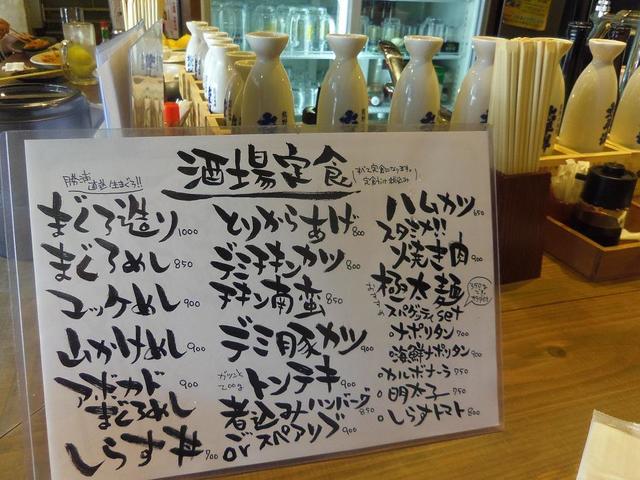 酒場定食
すべて定食になります。
勝浦直送生まぐろ!!
まぐろ造り 1000
まぐろめし 850
ユッケめし 900
山かけめし 900
アボカド
まぐろめし 900
しらす丼 900
とりからあげ 800
デミチキンカツ 800
チキン南蛮 850
デミ豚カツ 900
ガツンと
200g
トンテキ 900
煮込みハンバーグ 850
or スペアリブ 900
ハムカツ 650
スタミナ!!
焼き肉 900
極太麺
おすすめ
スパゲッティset
ナポリタン 700
海鮮ナポリタン 900
カルボナーラ 750
明太子 750
しらすトマト 800